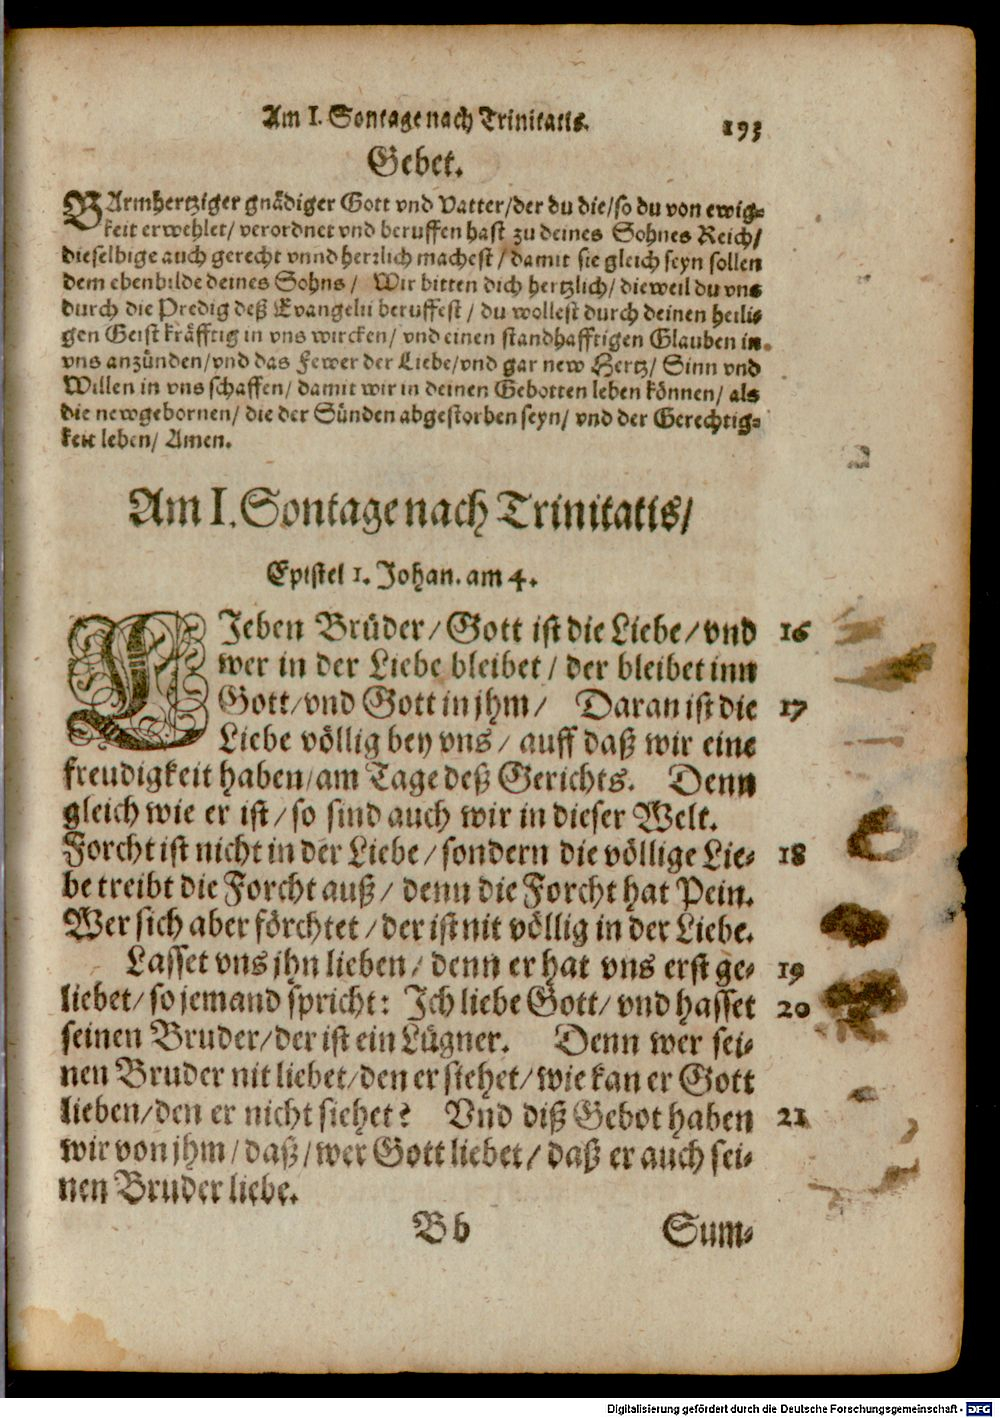 Am I. Sontage nach Trinitatis. 193
Gebet.
BArmhertziger gnädiger Gott vnd Vatter/der du die/so du von ewig⸗
keit erwehlet/ verordnet vnd beruffen hast zu deines Sohnes Reich/
dieselbige auch gerecht vnnd herrlich machest/ damit sie gleich seyn sollen
dem ebenbilde deines Sohns/ Wir bitten dich hertzlich/ dieweil du vns
durch die Predig deß Evangelii beruffest/ du wollest durch deinen heili⸗
gen Geist kräfftig in vns wircken/ vnd einen standhafftigen Glauben in
vns anzünden/vnd das Fewer der Liebe/vnd gar new Hertz/ Sinn vnd
Willen in vns schaffen/ damit wir in deinen Gebotten leben können/ als
die newgebornen/ die der Sünden abgestorben seyn/ vnd der Gerechtig⸗
keit leben/ Amen.
Am I. Sontage nach Trinitatis/
Epistel 1. Johan. am 4.
LJeben Brüder/Gott ist die Liebe/vnd 16
wer in der Liebe bleibet/ der bleibet inn
Gott/vnd Gott in jhm/ Daran ist die 17
Liebe völlig bey vns/ auff daß wir eine
freudigkeit haben/am Tage deß Gerichts. Denn
gleich wie er ist/so sind auch wir in dieser Welt.
Forcht ist nicht in der Liebe/sondern die völlige Lie⸗ 18
be treibt die Forcht auß/ denn die Forcht hat Pein.
Wer sich aber förchtet/der ist nit völlig in der Liebe.
Lasset vns jhn lieben/ denn er hat vns erst ge⸗ 19
liebet/so jemand spricht: Ich liebe Gott/ vnd hasset 20
seinen Bruder/der ist ein Lügner. Denn wer sei⸗
nen Bruder nit liebet/den er siehet/wie kan er Gott
lieben/den er nicht siehet? Vnd diß Gebot haben 21
wir von jhm/daß/wer Gott liebet/daß er auch sei⸗
nen Bruder liebe.
B b Sum⸗
Digitalisierung gefördert durch die Deutsche Forschungsgemeinschaft - DFG